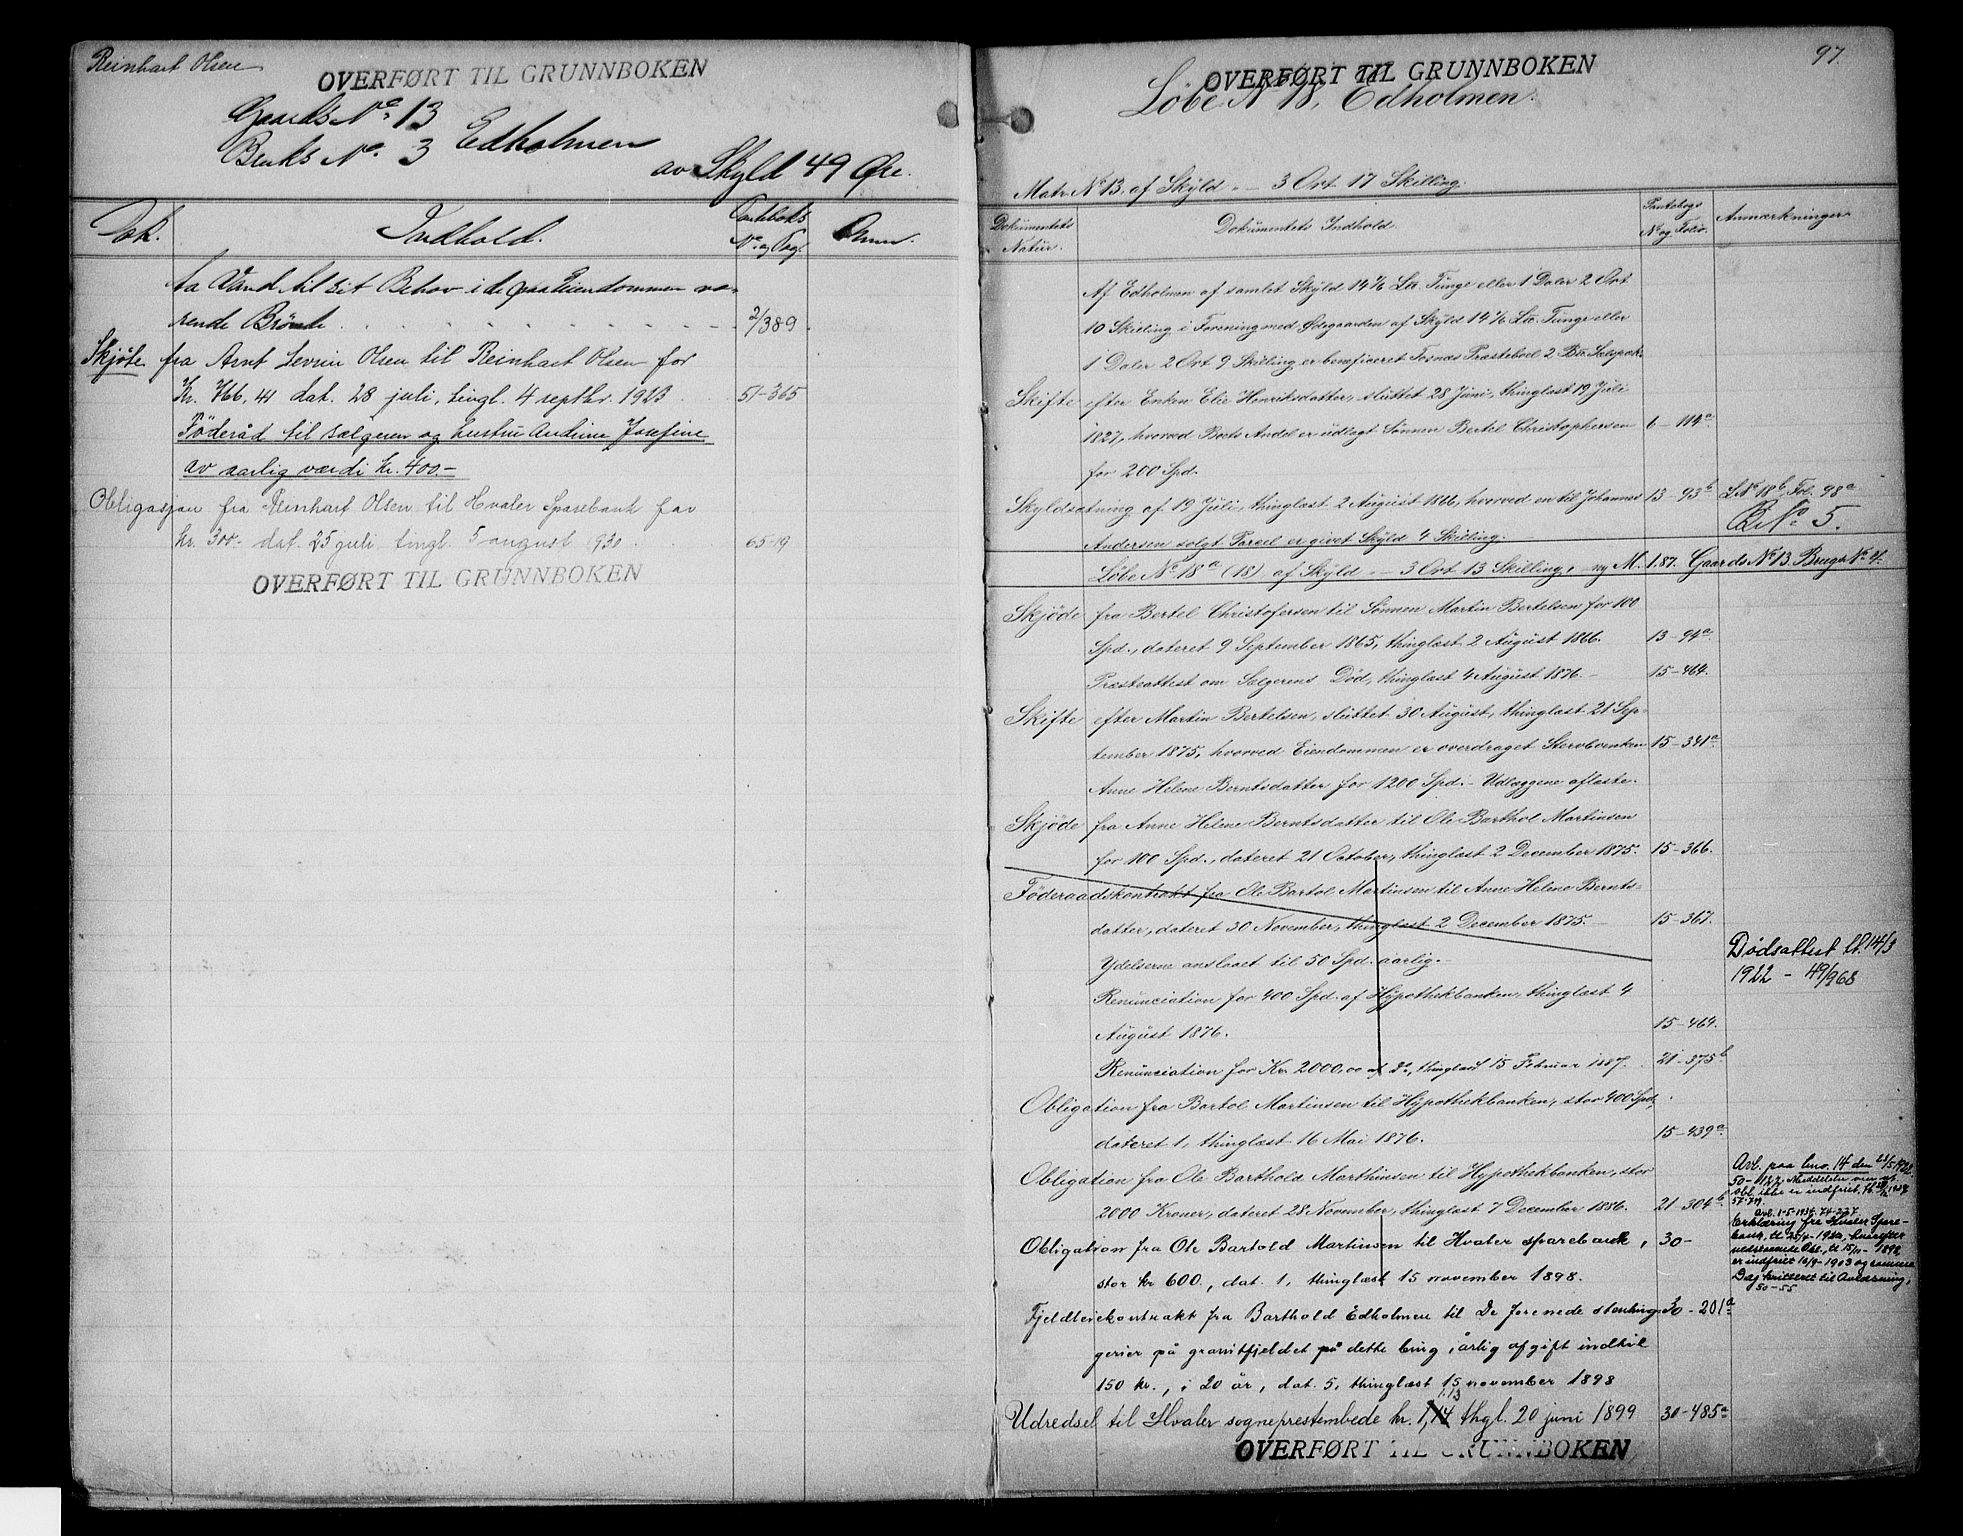 Reinhart Olsen
OVERFØRT TIL GRUNNBOKEN
Gaards No. 13
Bruks No. 3 Edholmen
av Skyld 49 Øre.
Dok. Indhold. Panteboks No. og Pag. Anm.
ta Vand til sit Behov i de paa Eiendommen væ-
rende Brønde 2/389
Skjøte fra Arnt Severin Olsen til Reinhart Olsen for
Kr. 766,41 dat. 28 juli, tingl. 4 septbr. 1923 51-365
Føderåd til sælgeren og hustru Andrine Josefine
av aarlig værdi kr. 400.-
Obligasjon fra Reinhart Olsen til Hvaler Sparebank for
kr. 300- dat. 25 juli tingl. 5 august 1930 65-19
OVERFØRT TIL GRUNNBOKEN
97.
OVERFØRT TIL GRUNNBOKEN
Løbe No 18, Edholmen.
Matr. No 13, af Skyld - - 3 Ort 17 Skilling.
Dokumentets Natur. Dokumentets Indhold. Pantebogs No og Folio. Anmærkninger
Af Edholmen af samlet Skyld 14 1/6 Lb. Tunge eller 1 Daler 2 Ort
10 Skilling i Forening med Ødegaarden af Skyld 14 1/6 Lb. Tunge eller
1 Daler 2 Ort 9 Skilling, er beneficeret Tornæs Præstebol 2 Bb. Selspæk.
Skifte efter Enken Elie Henriksdatter, sluttet 28 Juni, thinglæst 19 Juli
1827, hvorved Boets Andel er udlagt Sønnen Bertil Christophersen 6-114a
for 200 Spd.
Skyldsætning af 19 Juli, thinglæst 2 August 1866, hvorved en til Johannes 13-93b L No 18b, Fol. 98a
Andersen solgt Parcel er givet Skyld 4 Skilling. B No. 5.
Løbe No 18a (18) af Skyld - - 3 Ort 13 Skilling, ny M. 1.87. Gaards No 13 Brugs No 4.
Skjøde fra Bertel Christofersen til Sønnen Martin Bertelsen for 100
Spd., dateret 9 September 1865, thinglæst 2 August 1866. 13-94a
Præsteattest om Sælgerens Død, thinglæst 4 August 1876. 15-464.
Skifte efter Martin Bertelsen, sluttet 30 August, thinglæst 21 Sep-
tember 1875, hvorved Eiendommen er overdraget Stervboenken 15-341a
Anne Helene Berntsdatter for 1200 Spd. - Udlæggene aflæste.
Skjøde fra Anne Helene Berntsdatter til Ole Barthol Martinsen
for 100 Spd., dateret 21 October, thinglæst 2 December 1875. 15-366.
Føderaadskontrakt fra Ole Bartol Martinsen til Anne Helene Bernts-
datter, dateret 30 November, thinglæst 2 December 1875. 15-367.
Ydelserne anslaaet til 50 Spd. aarlig. Dødsattest tl. 14/3
1922 - 49/968
Renunciation for 400 Spd. af Hypothekbanken, thinglæst 4
August 1876. 15-464.
Renunciation for Kr. 2000,00 af Do, thinglæst 15 Februar 1887. 21-375b
Obligation fra Bartol Martinsen til Hypothekbanken, stor 400 Spd,
dateret 1, thinglæst 16 Mai 1876. 15-439a
Obligation fra Ole Barthold Marthinsen til Hypothekbanken, stor
2000 Kroner, dateret 28 November, thinglæst 7 December 1886. 21-304b
Avl. paa bno. 14 den
Avl. 1-5-1937. 74-227
Obligation fra Ole Bartold Martinsen til Hvaler sparebank, 30-
stor kr 600., dat. 1, thinglæst 15 november 1898.
Erklæring fra Hvaler Spare-
bank, tl. 25/4-1922, hvorefter
nedstaaende Obl., tl. 15/11-1898
er indfriet 16/4-1903 og samme
Dag kvitteret til Avlæsning,
50-55
Fjeldleiekontrakt fra Barthold Edholmen til De forenede stenhug- 30-201a
gerier på granitfjeldet på dette brug, årlig afgift indtil
150 kr., i 20 år, dat. 5, thinglæst 15 november 1898
1.13
Udredsel til Hvaler sogneprestembede kr. 1,14 thgl. 20 juni 1899 30-485a
OVERFØRT TIL GRUNNBOKEN